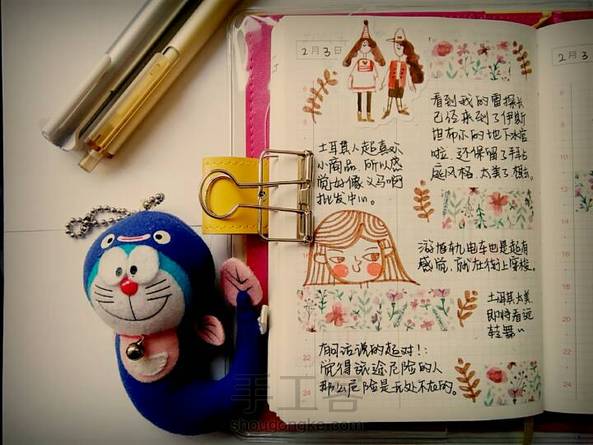 2月3日
2月3
看到我的雷探长
已经来到了伊斯
坦布尔的地下水宫
啦,还保留了手帐
庭风格,太美了想去。
土耳其人超喜欢
小商品,所以感
觉好像义乌啊
批发中心。
游览轨电车也是超有
感觉,就在街上穿梭。
土耳其太美
即将看远
鞋舞~
有句话说的超对!:
觉得旅途危险的人
那么危险是无处不在的。
8
10
12
14
16
18
20
22
24
手工客
shougongke.com